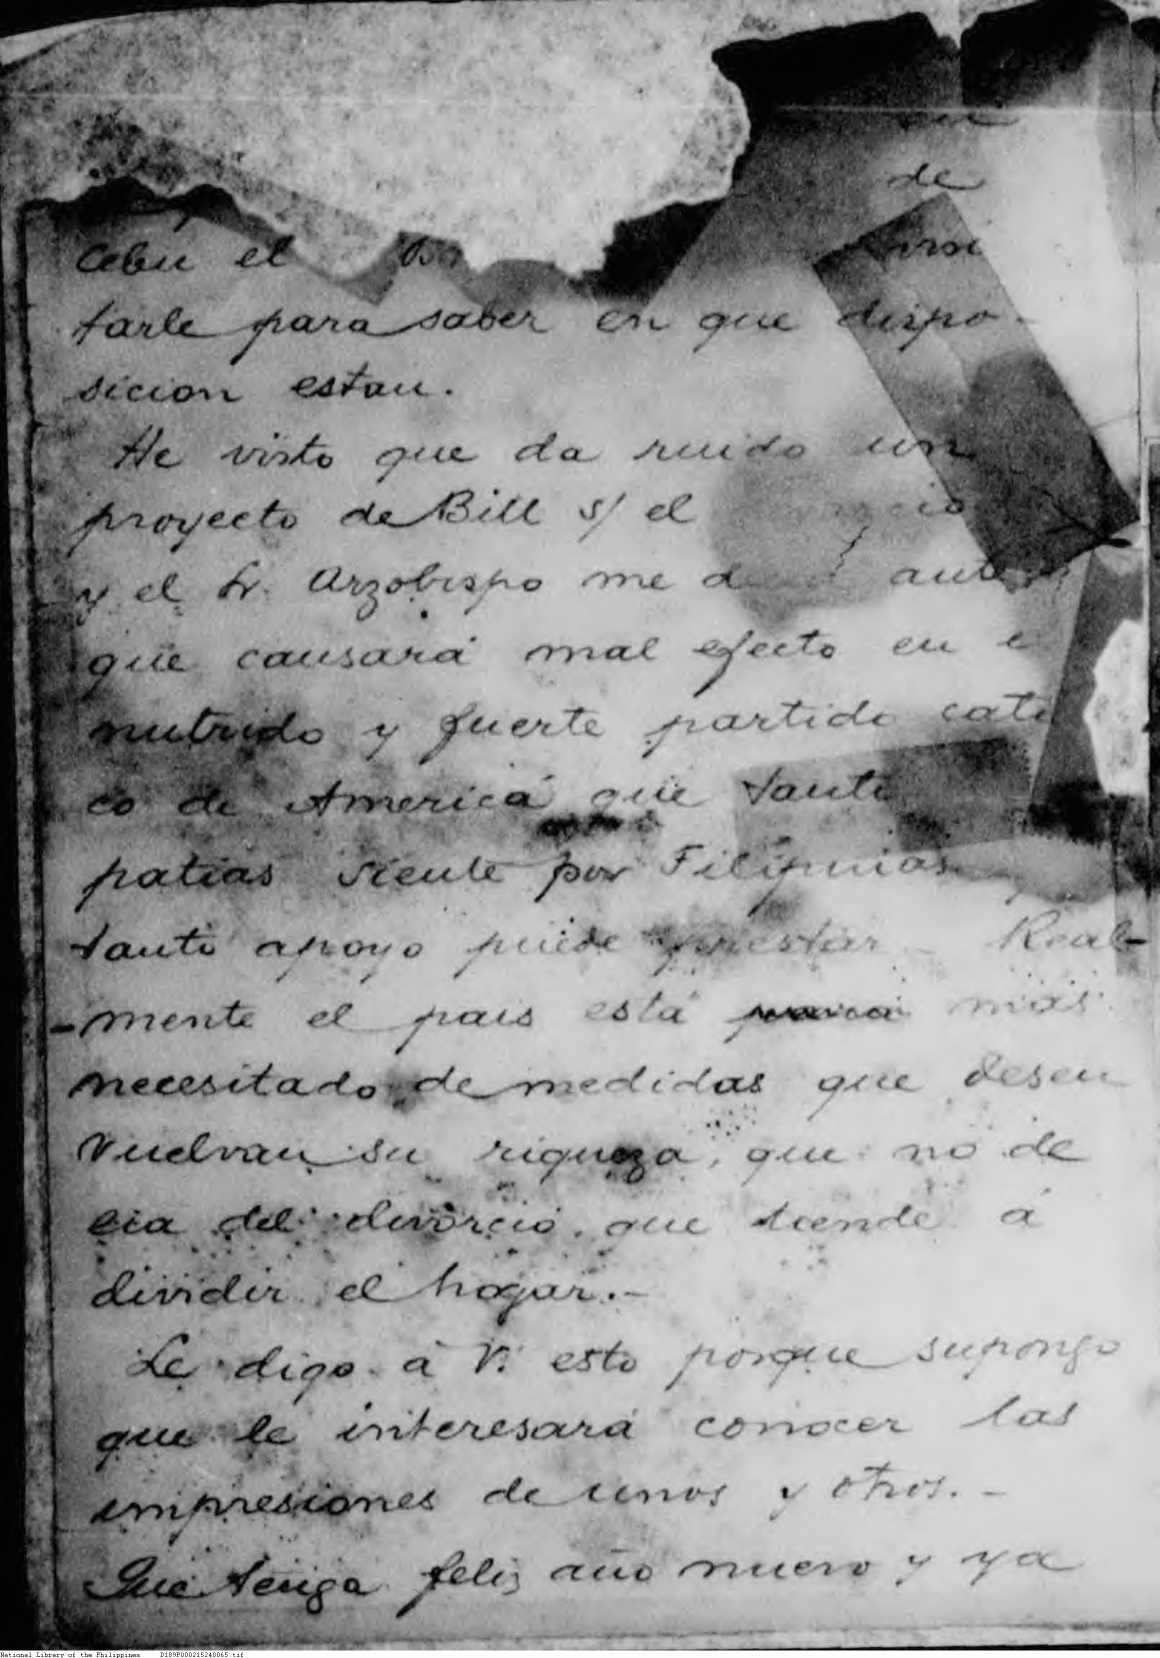 en
de
Cebú el
tarle para saber en que dispo-
sicion estan.
He visto que da ruido un
proyecto de Bill s/ el
y el Sr. Arzobispo me
que causará mal efecto en e
nutrido y fuerte partido cató
co de América que tanta
patias siente por Filipinas
tanto apoyo puede prestar - Real-
-mente el pais está más
necesitado de medidas que desen
vuelvan su riqueza, que no de
cia del divorcio que tiende á
dividir el hogar.-
Le digo á V. esto porque supongo
que le interesará conocer las
impresiones de unos y otros.-
Que tenga feliz año nuevo y ya
National Library of the Philippines D189P000215240065.tif